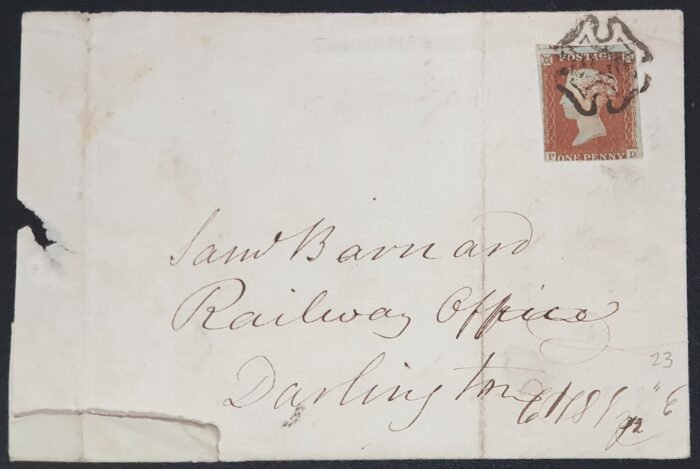 POSTAGE
P ONE PENNY D
Saml Barnard
Railway Office
Darlington
23